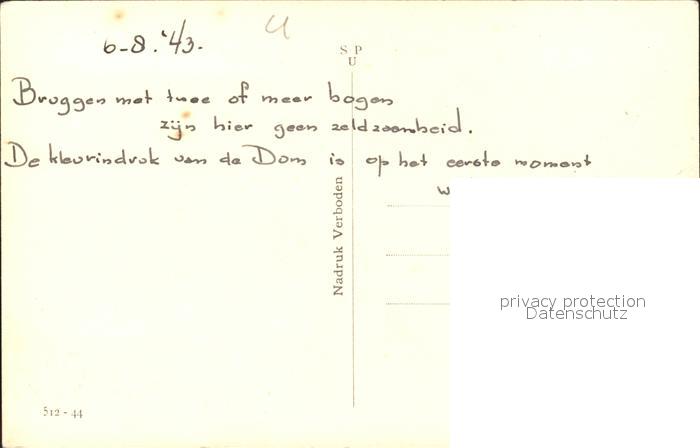 6-8.'43.
S P
U
Bruggen met twee of meer bogen
zijn hier geen zeldzaamheid.
De kleurindruk van de Dom is op het eerste moment
w
Nadruk Verboden
privacy protection
Datenschutz
512 - 44